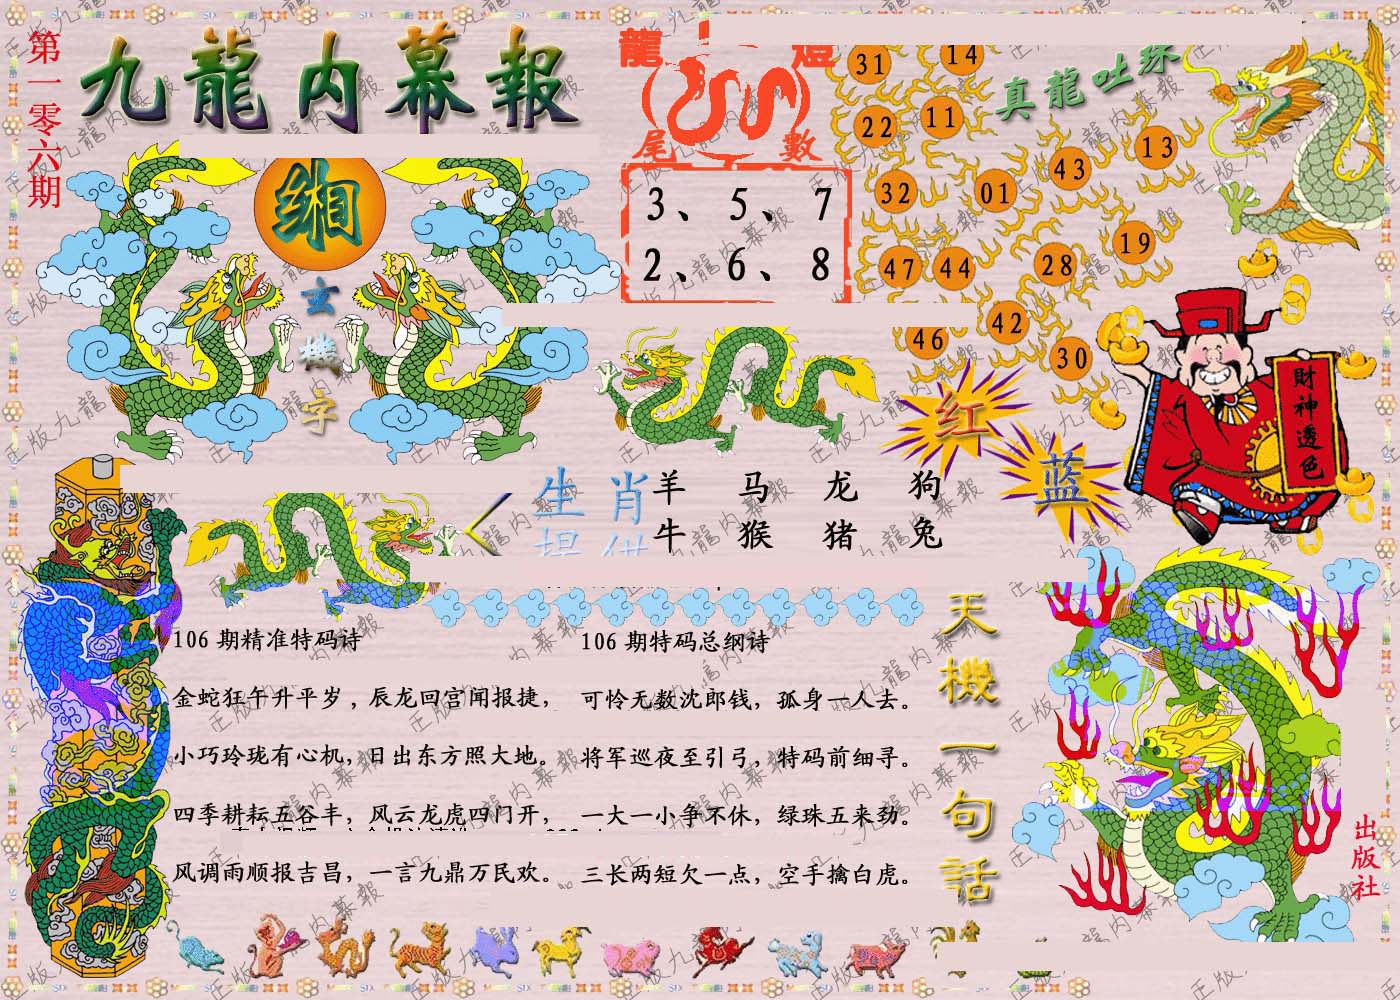 第一零六期
九龍内幕報
缃
玄機字
龍
尾數
3、5、7
2、6、8
真龍吐珠
31
14
22
11
13
43
32
01
19
47
44
28
42
46
30
財神透色
红
蓝
生肖
羊 马 龙 狗
牛 猴 猪 兔
106 期精准特码诗
金蛇狂午升平岁，辰龙回宫闻报捷，
小巧玲珑有心机，日出东方照大地。
四季耕耘五谷丰，风云龙虎四门开，
风调雨顺报吉昌，一言九鼎万民欢。
106 期特码总纲诗
可怜无数沈郎钱，孤身一人去。
将军巡夜至引弓，特码前细寻。
一大一小争不休，绿珠五来劲。
三长两短欠一点，空手擒白虎。
天機一句話
出版社
正版九龍内幕報